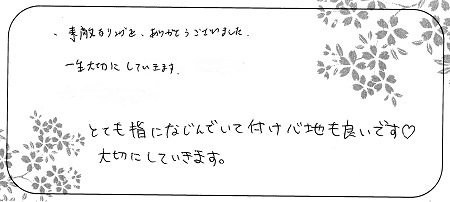 、素敵なリングを、ありがとうございました。
一生大切にしていきます。
とても指になじんでいて付け心地も良いです♡
大切にしていきます。